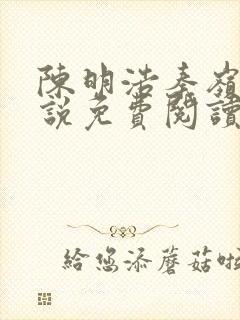 陳明浩秦嶺
說免費閱讀
給您添蘑菇啦